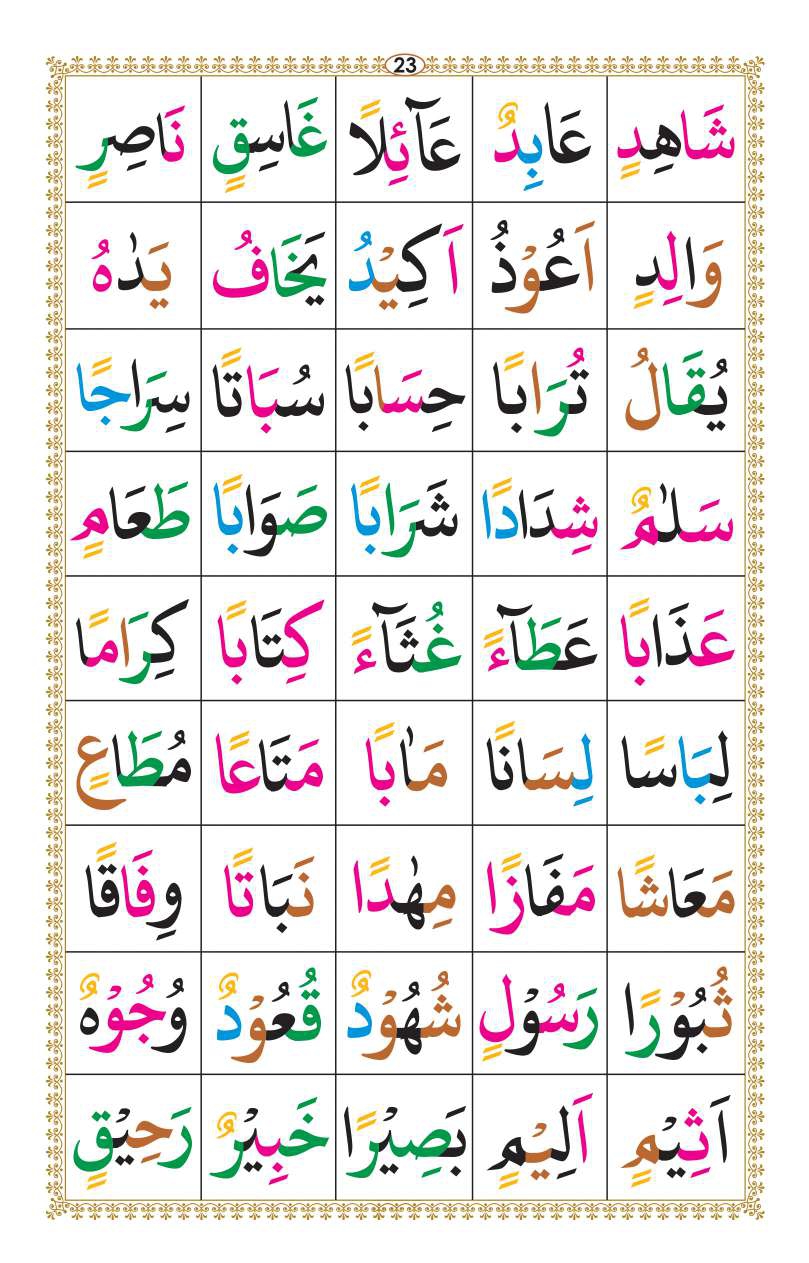 23
شَاهِدٍ عَابِدٌ عَآئِلًا غَاسِقٍ نَاصِرٍ
وَالِدٍ اَعُوْذُ اَكِيْدُ يَخَافُ يَدٰهُ
يُقَالُ تُرَابًا حِسَابًا سُبَاتًا سِرَاجًا
سَلٰمٌ شِدَادًا شَرَابًا صَوَابًا طَعَامٍ
عَذَابًا عَطَآءً غُثَآءً كِتَابًا كِرَامًا
لِبَاسًا لِسَانًا مَاٰبًا مَتَاعًا مُطَاعٍ
مَعَاشًا مَفَازًا مِهٰدًا نَبَاتًا وِفَاقًا
ثُبُوْرًا رَسُوْلٍ شُهُوْدٌ قُعُوْدٌ وُجُوْهٌ
اَثِيْمٍ اَلِيْمٍ بَصِيْرًا خَبِيْرٌ رَحِيْقٍ